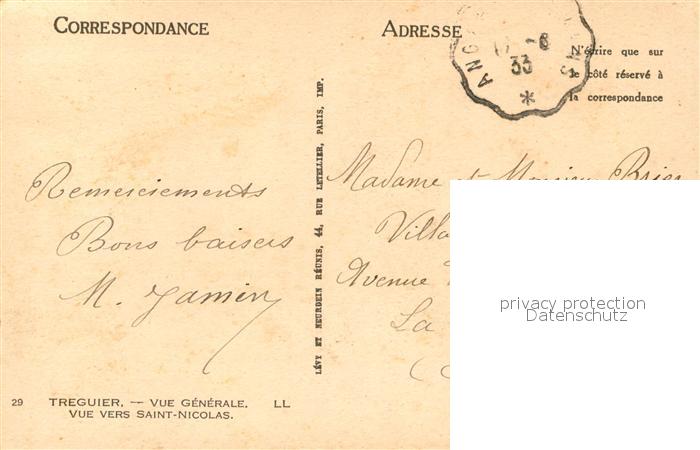 CORRESPONDANCE
ADRESSE
N'écrire que sur
le côté réservé à
la correspondance
-8
33
*
Remerciements
Bons baisers
M. Jamin
LÉVY ET NEURDEIN RÉUNIS, 44, RUE LETELLIER, PARIS, IMP.
Madame et Monsieur
Villa
Avenue
La
(
privacy protection
Datenschutz
29 TREGUIER. — VUE GÉNÉRALE. LL
VUE VERS SAINT-NICOLAS.